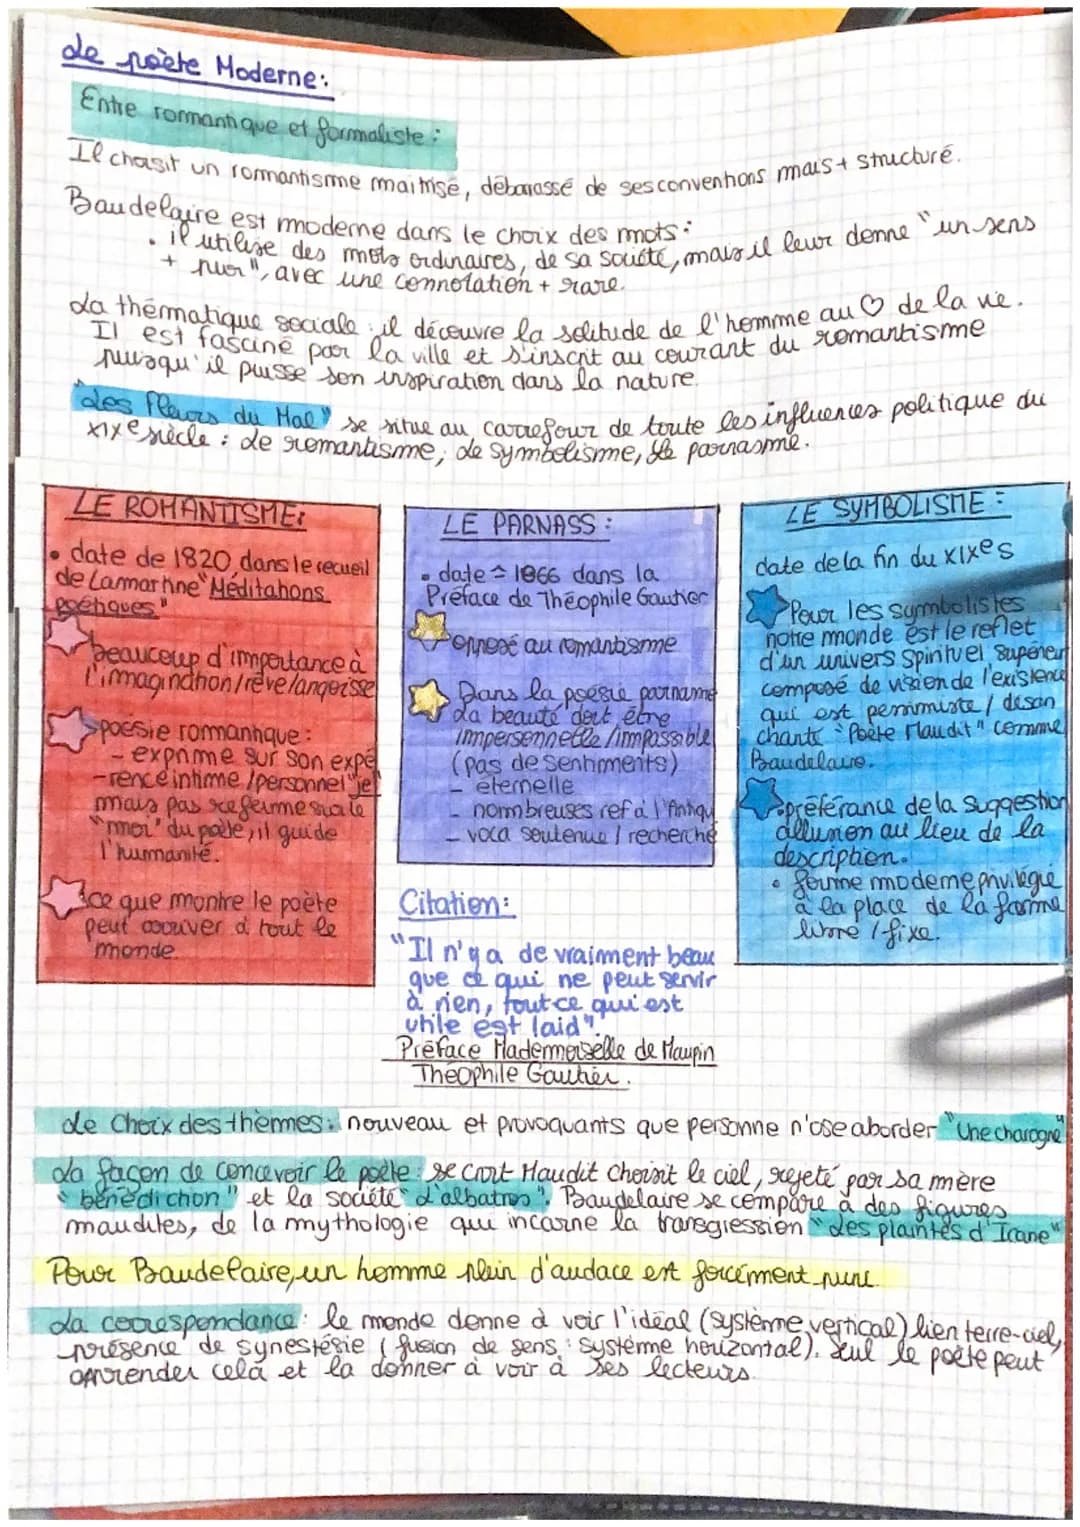 Le poète Moderne:
Entre romantique et formaliste :
Il choisit un romantisme maitrisé, débarassé de ses conventions mais + structuré.
Baudelaire est moderne dans le choix des mots :
• il utilise des mots ordinaires, de sa société, mais il leur donne "un sens
+ pur", avec une connotation + rare.
La thématique sociale : il découvre la solitude de l'homme au ♡ de la vie.
Il est fasciné par la ville et s'inscrit au courant du romantisme
puisqu'il puisse son inspiration dans la nature.
"Les Fleurs du Mal" se situe au carrefour de toute les influences politique du
XIXe siècle : Le romantisme, Le Symbolisme, Le parnasme.
LE ROMANTISME:
• date de 1820, dans le recueil
de Lamartine "Méditations
poétiques"
beaucoup d'importance à
l'imagination/rêve/angoisse
poesie romantique :
- exprime sur son expé
-rence intime /personnel "je"
mais pas refermé sur le
"moi" du poète, il guide
l'humanité.
ce que montre le poète
peut arriver à tout le
monde.
LE PARNASS :
• date = 1866 dans la
Préface de Théophile Gautier
opposé au romantisme
Dans la poésie parname
La beauté doit être
impersonnelle /impassible
(pas de sentiments)
- éternelle
- nombreuses ref à l'Antiqu
- voca soutenue / recherché
Citation:
"Il n'y a de vraiment beau
que ce qui ne peut servir
à rien, tout ce qui est
utile est laid".
Préface Mademoiselle de Maupin
Théophile Gautier.
LE SYMBOLISME :
date de la fin du XIXes
Pour les symbolistes
notre monde est le reflet
d'un univers Spirituel Supérieur
composé de vision de l'existence
qui est pessimiste / désan
chanté "Poète Maudit" comme
Baudelaire.
préférance de la Suggestion
allusion au lieu de la
description.
• forme moderne privilégié
à la place de la forme
libre / fixe.
Le Choix des thèmes : nouveau et provoquants que personne n'ose aborder "Une charogne"
La façon de concevoir le poète : se croit Maudit choisit le ciel, rejeté par sa mère
"bénédiction" et la société "L'albatros". Baudelaire se compare à des figures
maudites, de la mythologie qui incarne la transgression "Les plaintes d'Icare"
Pour Baudelaire, un homme plein d'audace est forcément puni.
La correspondance : le monde donne à voir l'idéal (système vertical) lien terre-ciel,
présence de synestésie (fusion de sens : système horizontal). Seul le poète peut
apprender cela et la donner à voir à ses lecteurs.